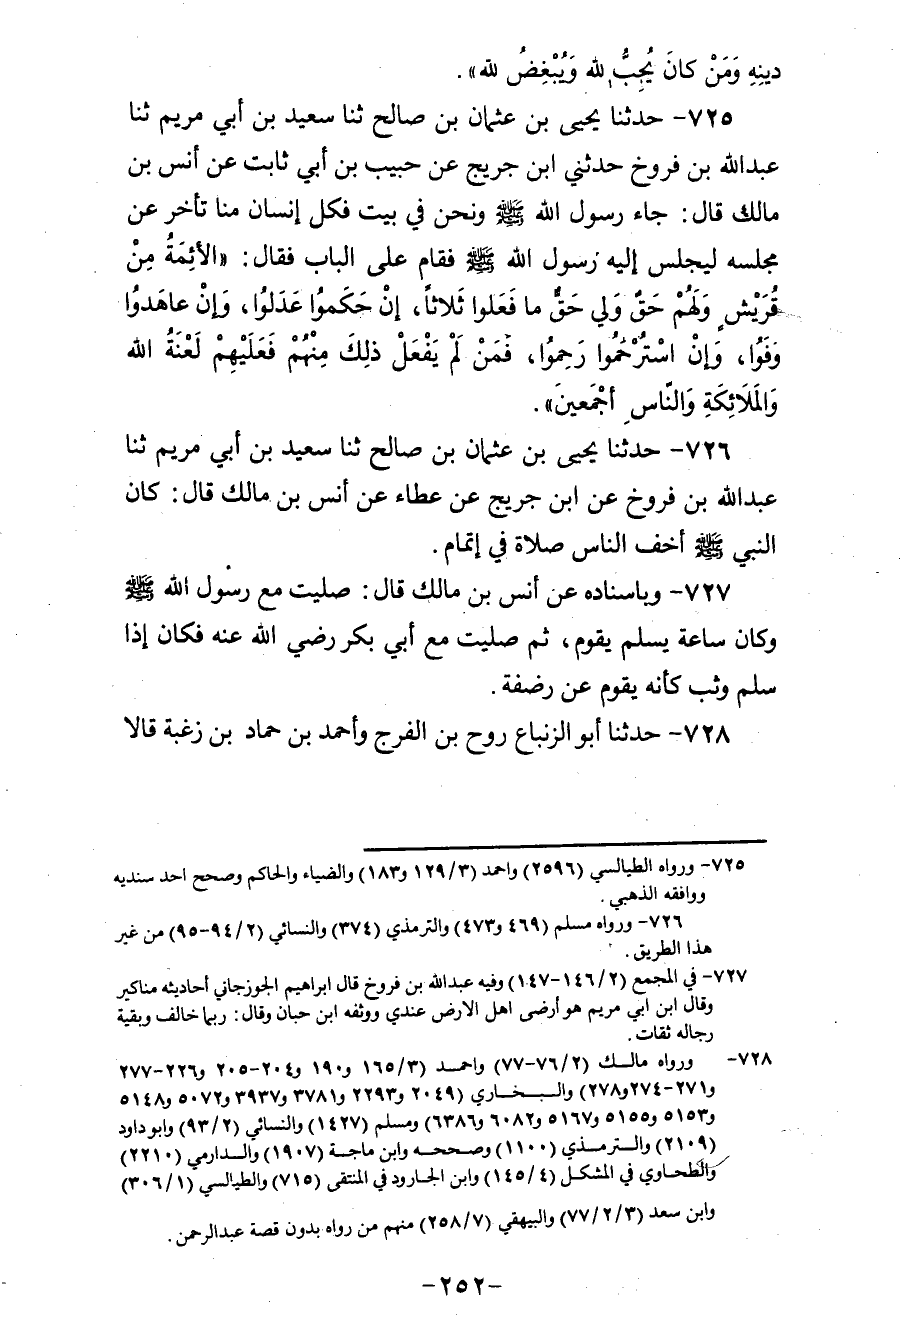 دينِهِ وَمَنْ كانَ يُحِبُّ لله وَيُبْغِضُ لله» .
٧٢٥- حدثنا يحيى بن عثمان بن صالح ثنا سعيد بن أبي مريم ثنا
عبدالله بن فروخ حدثني ابن جريج عن حبيب بن أبي ثابت عن أنس بن
مالك قال : جاء رسول الله ﷺ ونحن في بيت فكل إنسان منا تأخر عن
مجلسه ليجلس إليه رسول الله ﷺ فقام على الباب فقال : «الأئِمَةُ مِنْ
قُرَيْشٍ وَلَهُمْ حَقٌ وَلي حَقٌّ ما فَعَلوا ثَلاثاً، إنْ حَكَموُا عَدَلوُا، وَإنْ عاهَدوُا
وَفَوُا، وَإنْ اسْتُرْحُموُا رَحِموُا، فَمَنْ لَمْ يَفْعَلْ ذلِكَ مِنْهُمْ فَعَلَيْهِمْ لَعْنَةُ الله
وَالمَلَائِكَةِ وَالنَّاسِ أجْمَعينَ» .
٧٢٦- حدثنا يحيى بن عثمان بن صالح ثنا سعيد بن أبي مريم ثنا
عبدالله بن فروخ عن ابن جريج عن عطاء عن أنس بن مالك قال : كان
النبي ﷺ أخف الناس صلاة في إتمام .
٧٢٧- وباسناده عن أنس بن مالك قال : صليت مع رسول الله ﷺ
وكان ساعة يسلم يقوم، ثم صليت مع أبي بكر رضي الله عنه فكان إذا
سلم وثب كأنه يقوم عن رضفة .
٧٢٨- حدثنا أبو الزنباع روح بن الفرج وأحمد بن حماد بن زغبة قالا
٧٢٥- ورواه الطيالسي (٢٥٩٦) واحمد (١٢٩/٣ و١٨٣) والضياء والحاكم وصحح احد سنديه
ووافقه الذهبي .
٧٢٦- ورواه مسلم (٤٦٩ و٤٧٣) والترمذي (٣٧٤) والنسائي (٩٤/٢-٩٥) من غير
هذا الطريق .
٧٢٧- في المجمع (١٤٦/٢-١٤٧) وفيه عبدالله بن فروخ قال ابراهيم الجوزجاني أحاديثه مناكير
وقال ابن ابي مريم هو أرضى اهل الارض عندي ووثفه ابن حبان وقال : ربما خالف وبقية
رجاله ثقات .
٧٢٨- ورواه مالك (٧٦/٢-٧٧) واحمد (١٦٥/٣ و١٩٠ و٢٠٤-٢٠٥ و٢٢٦-٢٧٧
و٢٧١-٢٧٤و٢٧٨) والبخاري (٢٠٤٩ و٢٢٩٣ و٣٧٨١ و٣٩٣٧ و٥٠٧٢ و٥١٤٨
و٥١٥٣ و٥١٥٥ و٥١٦٧ و٦٠٨٢ و٦٣٨٦) ومسلم (١٤٢٧) والنسائي (٩٣/٢) وابو داود
(٢١٠٩) والترمذي (١١٠٠) وصححه وابن ماجة (١٩٠٧) والدارمي (٢٢١٠)
والطحاوي في المشكل (١٤٥/٤) وابن الجارود في المنتقى (٧١٥) والطيالسي (٣٠٦/١)
وابن سعد (٧٧/٢/٣) والبيهقي (٢٥٨/٧) منهم من رواه بدون قصة عبدالرحمن .
-٢٥٢-